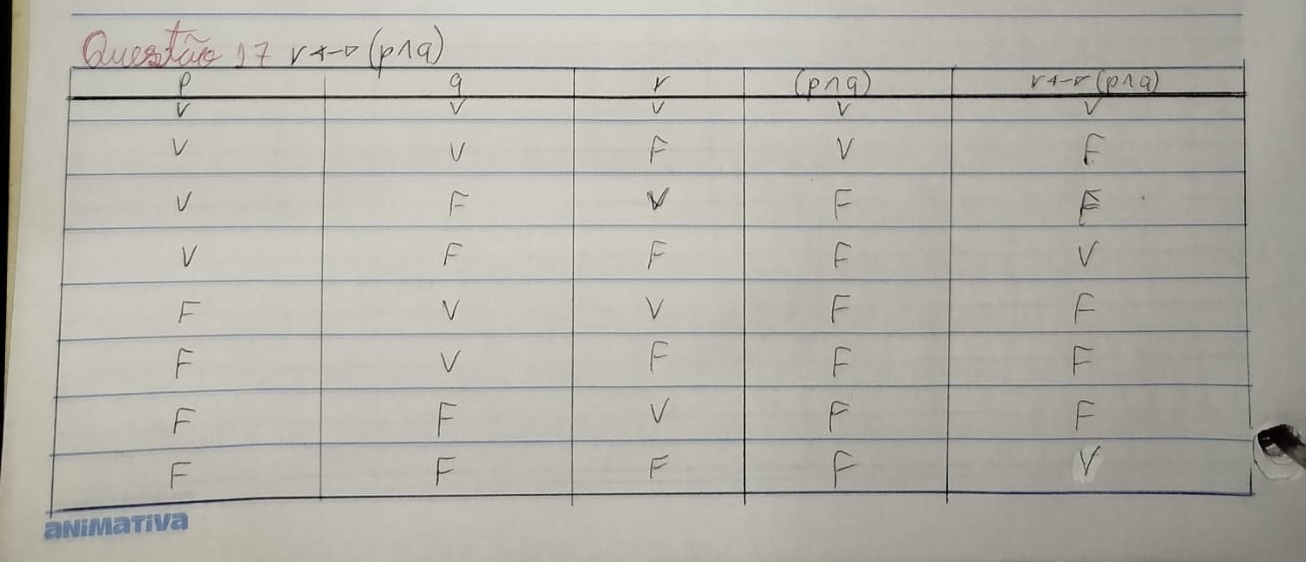 Questão 17 r ↔ (p∧q)
p q r (p∧q) r↔(p∧q)
V V V V V
V V F V F
V F V F F
V F F F V
F V V F F
F V F F F
F F V F F
F F F F V
aNiMaTiVa